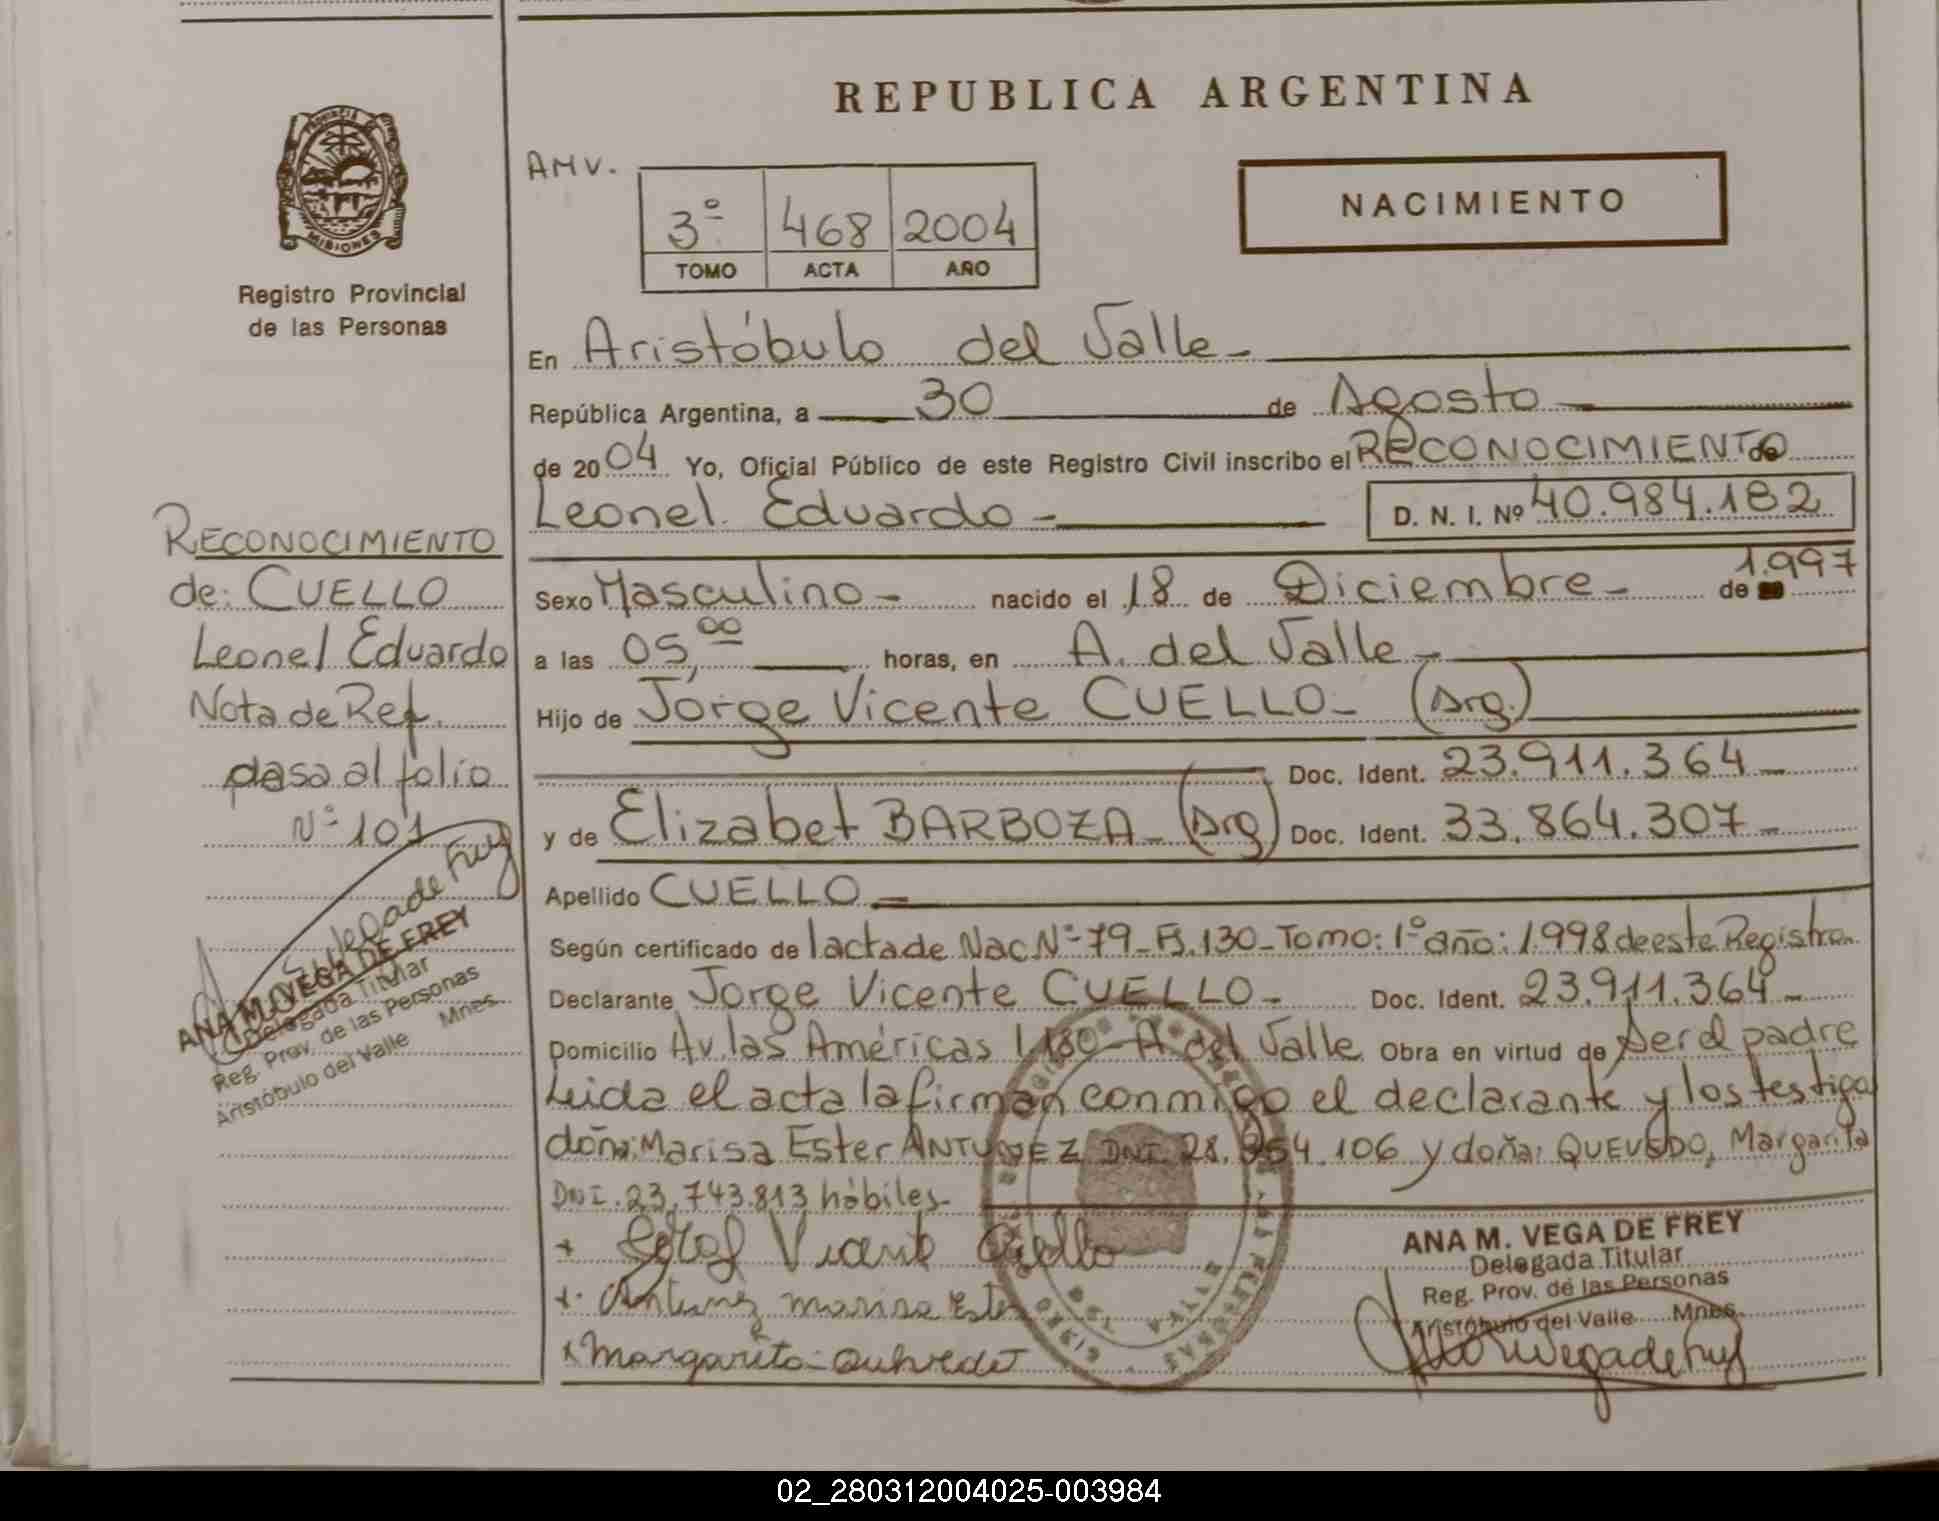 REPUBLICA ARGENTINA
PROVINCIA DE
MISIONES
Registro Provincial
de las Personas
AMV.
3º 468 2004
TOMO ACTA AÑO
NACIMIENTO
En Aristóbulo del Valle-
República Argentina, a 30 de Agosto
de 2004 Yo, Oficial Público de este Registro Civil inscribo el RECONOCIMIENTO de
Leonel Eduardo - D. N. I. Nº 40.984.182
Sexo Masculino- nacido el 18 de Diciembre- de 1.997
a las 05,00 horas, en A. del Valle-
Hijo de Jorge Vicente CUELLO- (Arg.)
Doc. Ident. 23.911.364-
y de Elizabet BARBOZA- (Arg) Doc. Ident. 33.864.307-
Apellido CUELLO-
Según certificado de l acta de Nac. Nº 79- F. 130- Tomo: 1º año: 1.998 de este Registro.
Declarante Jorge Vicente CUELLO- Doc. Ident. 23.911.364-
Domicilio Av. las Américas 1180- A. del Valle. Obra en virtud de ser el padre
Leida el acta la firman conmigo el declarante y los testigos
doña: Marisa Ester ANTUNEZ DNI. 28. 106 y doña: QUEVEDO, Margarita
DNI. 23.743.813 hábiles-
+ Vicente Cuello
+. Antunez marisa Ester
x Margarita Quevedo
ANA M. VEGA DE FREY
Delegada Titular
Reg. Prov. de las Personas
Aristóbulo del Valle Mnes.
RECONOCIMIENTO
de: CUELLO
Leonel Eduardo
Nota de Ref.
pasa al folio
Nº 101
ANA M. VEGA DE FREY
Delegada Titular
Reg. Prov. de las Personas
Aristóbulo del Valle Mnes.
02_280312004025-003984